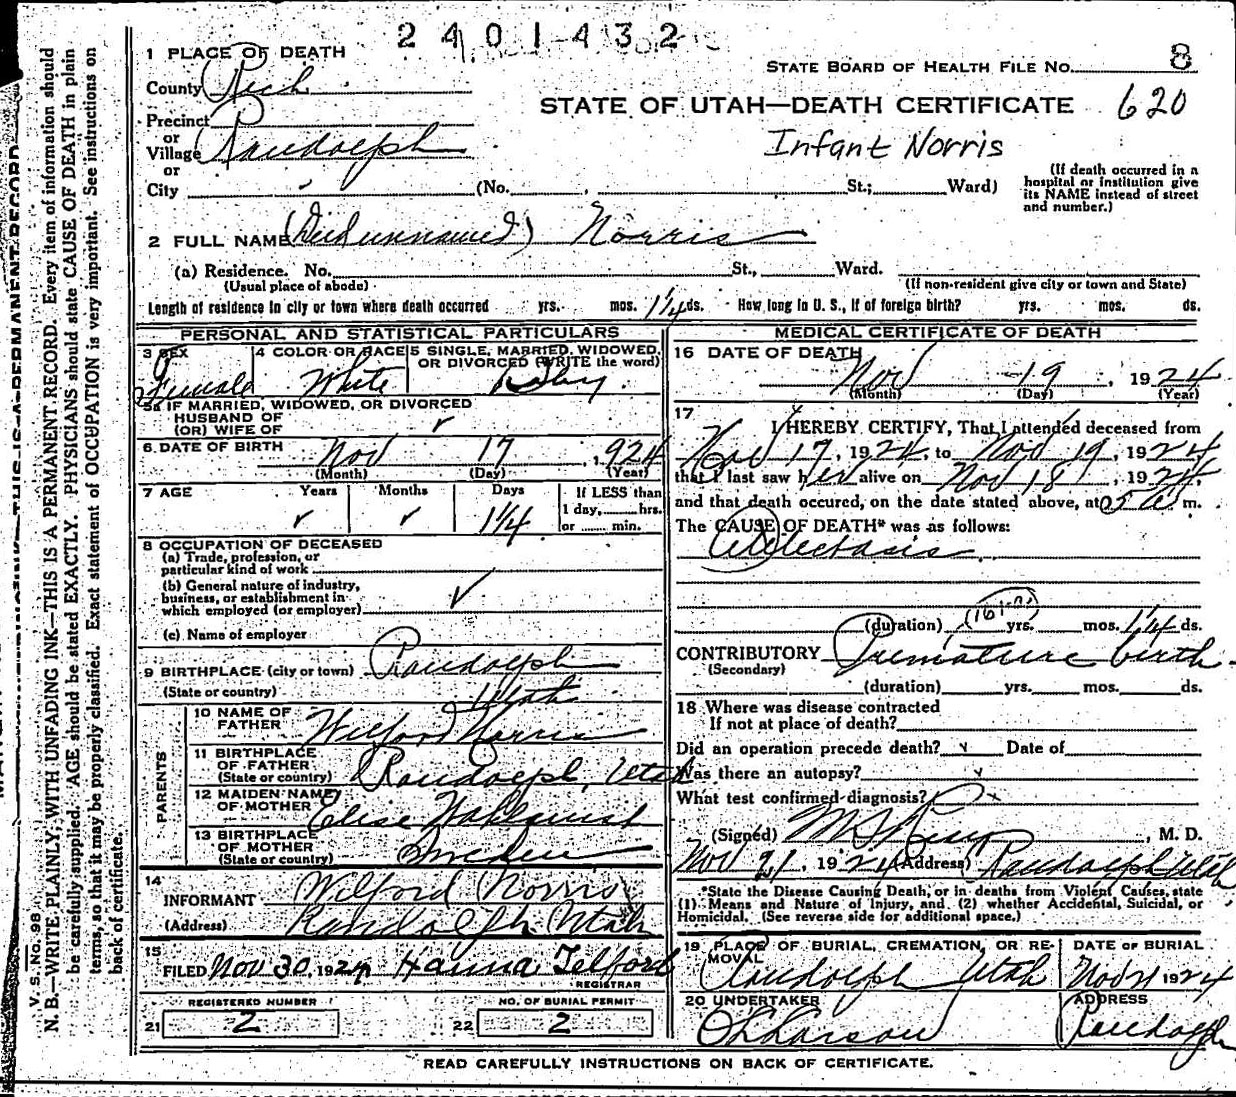 2401432
1 PLACE OF DEATH
County Rich
Precinct
or
Village Randolph
or
City (No. St.; Ward)
STATE BOARD OF HEALTH FILE NO. 8
STATE OF UTAH—DEATH CERTIFICATE 620
Infant Norris
(If death occurred in a
hospital or institution give
its NAME instead of street
and number.)
2 FULL NAME (Died unnamed) Norris
(a) Residence. No. St., Ward.
(Usual place of abode) (If non-resident give city or town and State)
Length of residence in city or town where death occurred yrs. mos. 1 1/4 ds. How long in U. S., if of foreign birth? yrs. mos. ds.
PERSONAL AND STATISTICAL PARTICULARS
3 SEX 4 COLOR OR RACE 5 SINGLE, MARRIED, WIDOWED,
OR DIVORCED (WRITE the word)
Female White Baby
5a IF MARRIED, WIDOWED, OR DIVORCED
HUSBAND OF
(OR) WIFE OF
6 DATE OF BIRTH Nov 17, 1924
(Month) (Day) (Year)
7 AGE Years Months Days If LESS than
1 day, hrs.
1 1/4 or min.
8 OCCUPATION OF DECEASED
(a) Trade, profession, or
particular kind of work
(b) General nature of industry,
business, or establishment in
which employed (or employer)
(c) Name of employer
9 BIRTHPLACE (city or town) Randolph
(State or country) Utah
PARENTS
10 NAME OF
FATHER Wilford Norris
11 BIRTHPLACE
OF FATHER
(State or country) Randolph, Utah
12 MAIDEN NAME
OF MOTHER Elise Wahlquist
13 BIRTHPLACE
OF MOTHER
(State or country) Sweden
14
INFORMANT Wilford Norris
(Address) Randolph Utah
15
FILED Nov 30, 1924 Hanna Telford
REGISTRAR
REGISTERED NUMBER NO. OF BURIAL PERMIT
21 2 22 2
MEDICAL CERTIFICATE OF DEATH
16 DATE OF DEATH
Nov 19, 1924
(Month) (Day) (Year)
17
I HEREBY CERTIFY, That I attended deceased from
Nov 17, 1924, to Nov 19, 1924
that I last saw her alive on Nov 18, 1924,
and that death occured, on the date stated above, at 5 a m.
The CAUSE OF DEATH* was as follows:
Atelectasis
(duration) yrs. mos. 1 1/4 ds.
CONTRIBUTORY Premature birth
(Secondary)
(duration) yrs. mos. ds.
18 Where was disease contracted
If not at place of death?
Did an operation precede death? Date of
Was there an autopsy?
What test confirmed diagnosis?
(Signed) , M. D.
Nov 21, 1924 (Address) Randolph Utah
*State the Disease Causing Death, or in deaths from Violent Causes, state
(1) Means and Nature of Injury, and (2) whether Accidental, Suicidal, or
Homicidal. (See reverse side for additional space.)
19 PLACE OF BURIAL, CREMATION, OR RE-
MOVAL DATE OF BURIAL
Randolph Utah Nov 21 1924
20 UNDERTAKER ADDRESS
Randolph
READ CAREFULLY INSTRUCTIONS ON BACK OF CERTIFICATE.
V. S. No. 98
N. B.—WRITE PLAINLY, WITH UNFADING INK—THIS IS A PERMANENT RECORD. Every item of information should
be carefully supplied. AGE should be stated EXACTLY. PHYSICIANS should state CAUSE OF DEATH in plain
terms, so that it may be properly classified. Exact statement of OCCUPATION is very important. See instructions on
back of certificate.